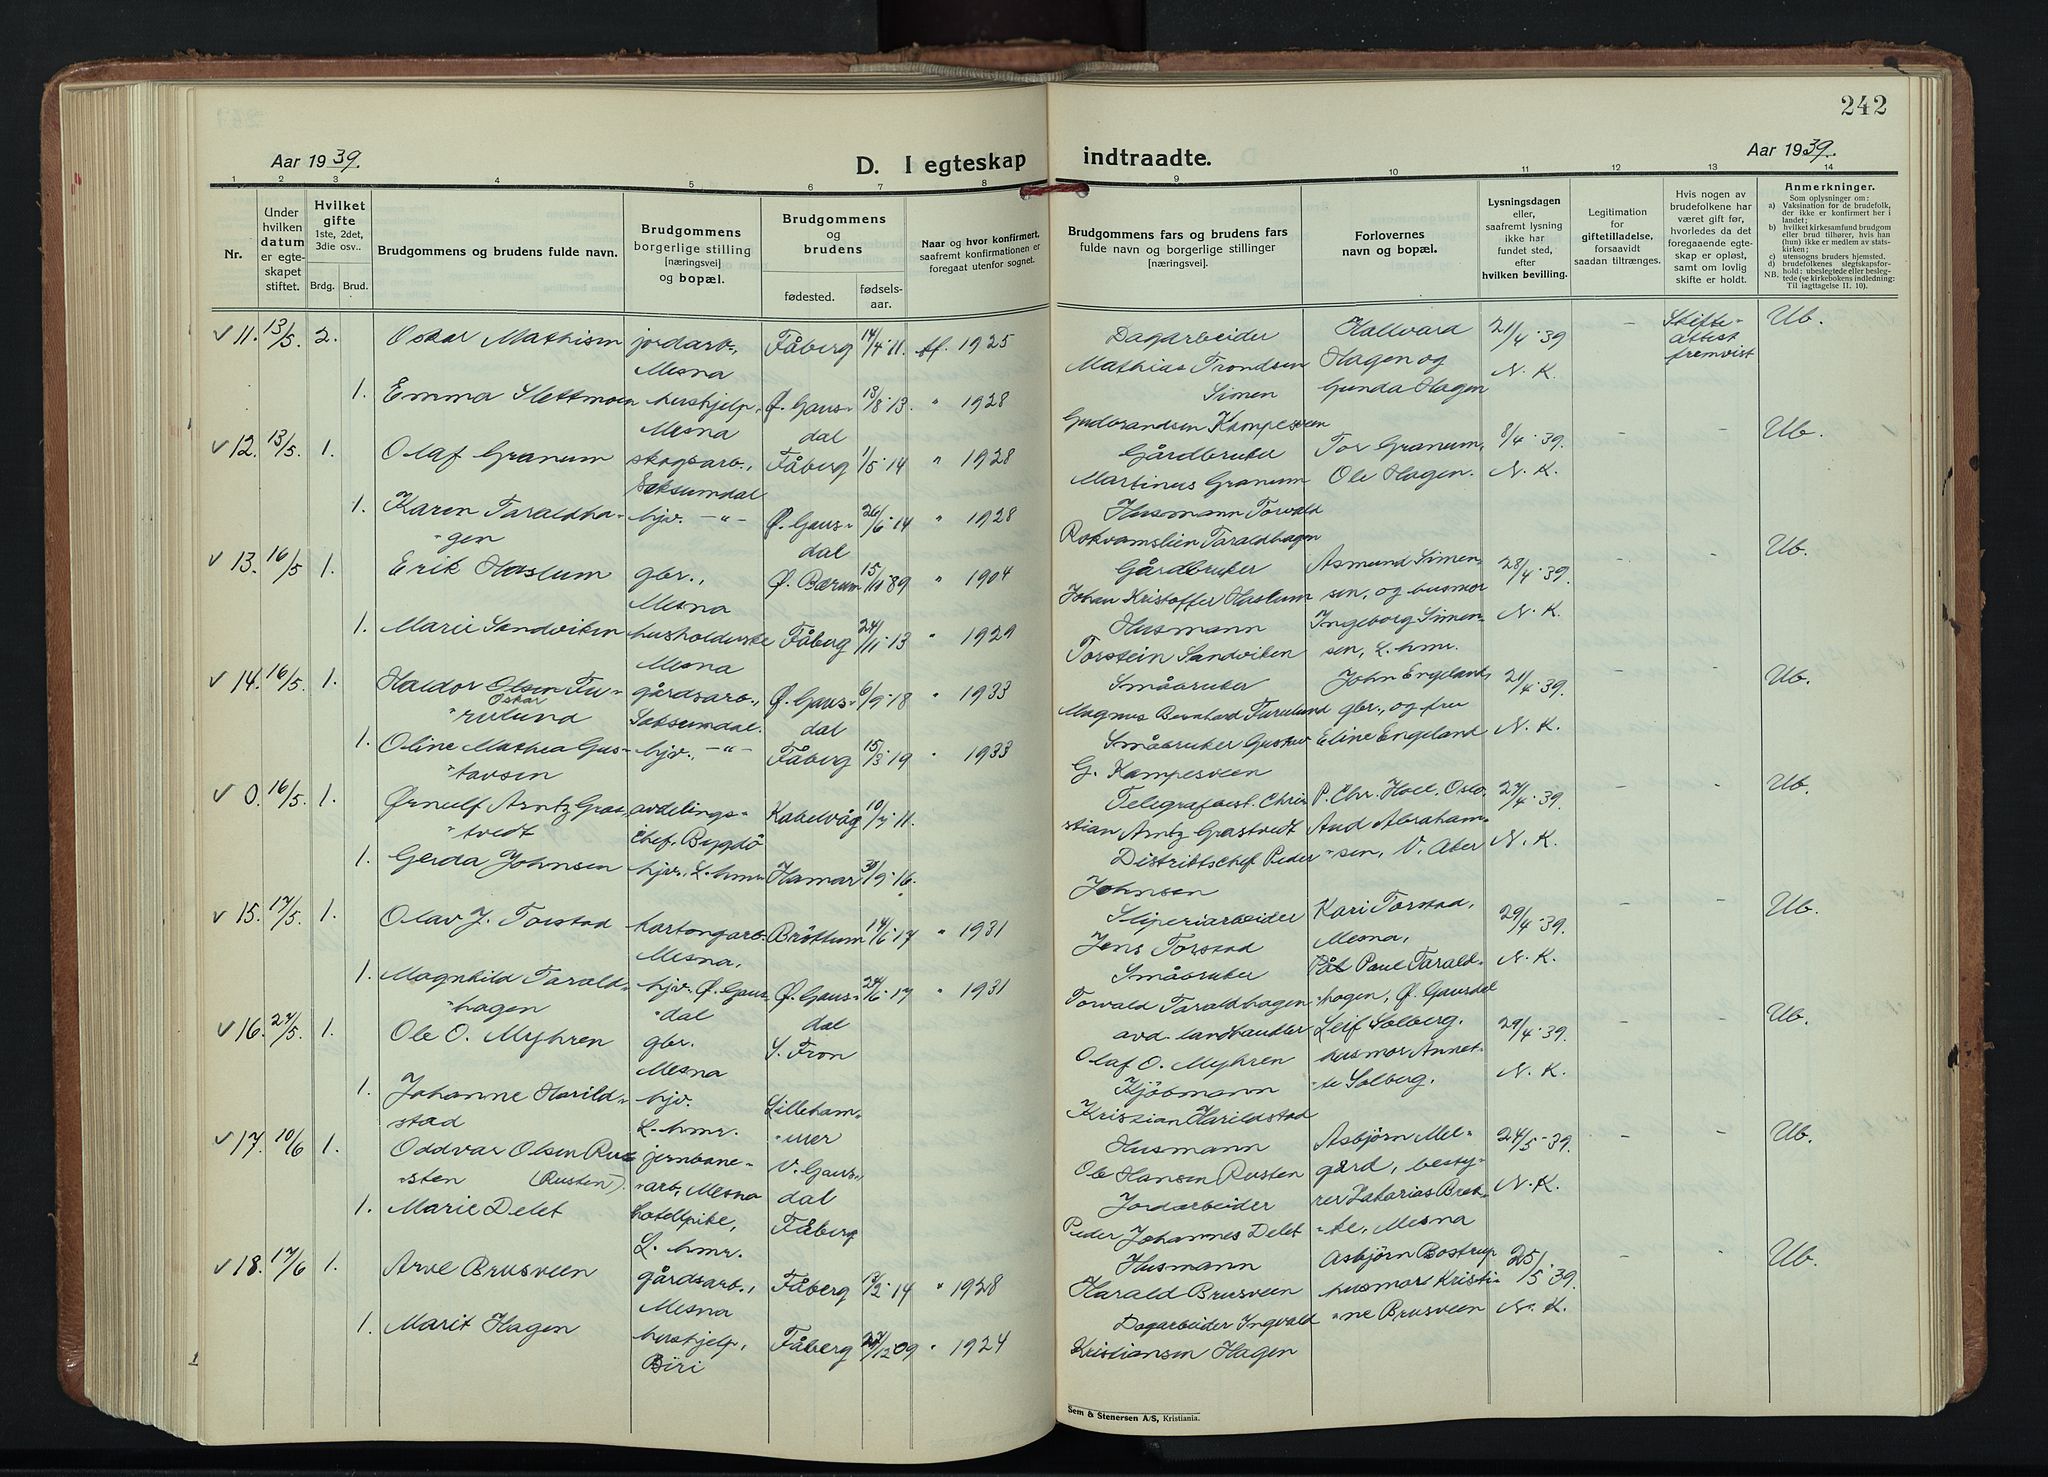 242
Aar 1939.
D. I egteskap indtraadte.
Aar 1939.
1 2 3 4 5 6 7 8 9 10 11 12 13 14
Nr.
Under hvilken datum er egteskapet stiftet.
Hvilket gifte 1ste, 2det, 3die osv..
Brdg. Brud.
Brudgommens og brudens fulde navn.
Brudgommens borgerlige stilling [næringsvei] og bopæl.
Brudgommens og brudens
fødested.
fødselsaar.
Naar og hvor konfirmert, saafremt konfirmationen er foregaat utenfor sognet.
Brudgommens fars og brudens fars fulde navn og borgerlige stillinger [næringsvei].
Forlovernes navn og bopæl.
Lysningsdagen eller, saafremt lysning ikke har fundet sted, efter hvilken bevilling.
Legitimation for giftetilladelse, forsaavidt saadan tiltrænges.
Hvis nogen av brudefolkene har været gift før, hvorledes da det foregaaende egteskap er opløst, samt om lovlig skifte er holdt.
Anmerkninger.
Som oplysninger om:
a) Vaksination for de brudefolk, der ikke er konfirmert her i landet;
b) hvilket kirkesamfund brudgom eller brud tilhører, hvis han (hun) ikke er medlem av statskirken;
c) utensogns bruders hjemsted.
d) brudefolkenes slegtskapsforhold: ubeslegtede eller beslegtede (se kirkebokens indledning: Til iagttagelse II. 10).
NB.
v 11. 13/5. 2. Oskar Mathisen jordarb., Mesna Fåberg 14/4-11. kf. 1925 Dagarbeider Mathias Trondsen Hallvard Hagen og Gunda Hagen 21/4-39 N. K. - Skifteattest fremvist Ub.
1. Emma Slettmoen hushjelp, Mesna Ø. Gausdal 13/8-13. " 1928 Simen Gudbrandsen Kampesveen
v 12. 13/5. 1. Olaf Granum skogsarb., Saksumdal Fåberg 1/5-14 " 1928 Gårdbruker Martinus Granum Tor Granum, Ole Hagen. 8/4-39. N. K. - - Ub.
1. Karen Taraldhagen hjv. -"- Ø. Gausdal 26/6-14 " 1928 Husmann Torvald Rokvamslien Taraldhagen
v 13. 16/5 1. Erik Haslum gbr., Mesna Ø. Bærum 15/11-89 " 1904 Gårdbruker Johan Kristoffer Haslum Asmund Simensen, og husmor Ingeborg Simensen, L.hmr. 28/4-39. N. K. - - Ub.
1. Marie Sandviken husholderske Mesna Fåberg 24/11-13 " 1929 Husmann Torstein Sandviken
v 14. 16/5. 1. Haldor Olsen Oskar Furulund gårdsarb., Saksumdal. Ø. Gausdal 6/9-18 " 1933 Småbruker Magnus Bernhard Furulund John Engeland, gbr., og fru Eline Engeland 21/4-39. N. K. - - Ub.
1. Oline Mathea Gustavsen hjv., -"- Fåberg 15/3-19 " 1933 Småbruker Gustav G. Kampesveen
v 0. 16/5. 1. Ørnulf Arntz Grastvedt avdelingschef, Bygdö Kabelvåg 10/7-11. Telegrafbest. Christian Arntz Grastvedt P. Chr. Holl. Oslo And Abrahamsen, V. Aker 27/4-39. N. K. - - Ub.
1. Gerda Johnsen hjv., L.hmr Hamar 30/9-16. Distriktschef Peder Johnsen
v 15. 17/5. 1. Olav J. Torstad kartongarb. Mesna, Brøttum 14/6-17 " 1931 Sliperiarbeider Jens Torstad Kari Torstad, Mesna, Pål Paul Taraldhagen, Ø. Gausdal 29/4-39. N. K. - - Ub.
1. Magnhild Taraldhagen hjv. Ø. Gausdal Ø. Gausdal 24/6-17 " 1931 Småbruker Torvald Taraldhagen
v 16. 27/5. 1. Ole O. Myhren gbr. Mesna S. Fron avd. landhandler Olaf O. Myhren Leif Solberg. husmor Annette Solberg. 29/4-39. N. K. - - Ub.
1. Johanne Harildstad hjv. L.hmr. Lillehammer Kjøbmann Kristian Harildstad
v 17. 10/6 1. Oddvar Olsen Rusten (Rusten). jernbanearb, Mesna V. Gausdal Husmann Ole Hansen Rusten Asbjørn Melgård, bestyrer Zakarias Brekke, Mesna 24/5-39. N. K. - - Ub.
1. Marie Delet hotellpike, L.hmr. Fåberg Jordarbeider Peder Johannes Delet
v 18. 17/6 1. Arve Brusveen gårdsarb., Mesna Fåberg 13/2-14 " 1928 Husmann Harald Brusveen Asbjørn Bostrup husmor Kristine Brusveen 25/5-39. N. K. - - Ub.
1. Marit Hagen hushjelp, Biri Fåberg 27/12 09 " 1924 Dagarbeider Ingvald Kristiansen Hagen
Sem & Stenersen A/S, Kristiania.